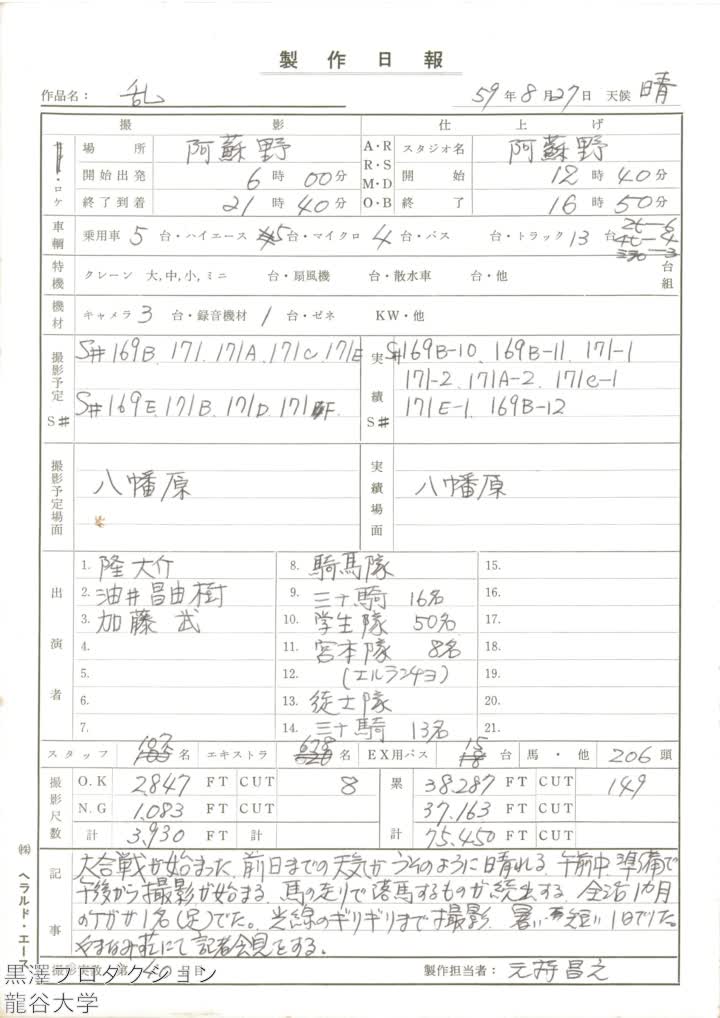 製作日報
作品名： 乱 59年8月27日 天候 晴
撮影 仕上げ
ロケ 場所 阿蘇野 A・R R・S M・D O・B スタジオ名 阿蘇野
開始出発 6時00分 開始 12時40分
終了到着 21時40分 終了 16時50分
車輌 乗用車 5 台・ハイエース 5台・マイクロ 4 台・バス 台・トラック 13 台 2t-6 4t-4
特機 クレーン 大,中,小,ミニ 台・扇風機 台・散水車 台・他 台組
機材 キャメラ 3 台・録音機材 1 台・ゼネ KW・他
撮影予定 S# S#169B、171、171A、171C、171E
S#169E、171B、171D、171F
実績 S# S#169B-10、169B-11、171-1
171-2、171A-2、171C-1
171E-1、169B-12
撮影予定場面 八幡原 実績場面 八幡原
出演者
1. 隆大介 8. 騎馬隊 15.
2. 油井昌由樹 9. 三十騎 16名 16.
3. 加藤武 10. 学生隊 50名 17.
4. 11. 宮本隊 8名 18.
5. 12. (エルランチョ) 19.
6. 13. 徒士隊 20.
7. 14. 三十騎 13名 21.
スタッフ 名 エキストラ 名 EX用バス 15 台 馬・他 206 頭
撮影尺数 O.K 2.847 FT CUT 8 累計 38.287 FT CUT 149
N.G 1.083 FT CUT 37.163 FT CUT
計 3.930 FT 計 75.450 FT CUT
記事 大合戦が始まった。前日までの天気がうそのように晴れる。午前中、準備で
午後から撮影が始まる。馬の走りで落馬するものが続出する。全治1カ月
のケガが1名(足)でた。光線のギリギリまで撮影。暑い 短い1日でした。
やまなみ荘にて記者会見をする。
撮影実数・第 40 日目 製作担当者： 元持昌之
㈱ ヘラルド・エース
黒澤プロダクション
龍谷大学